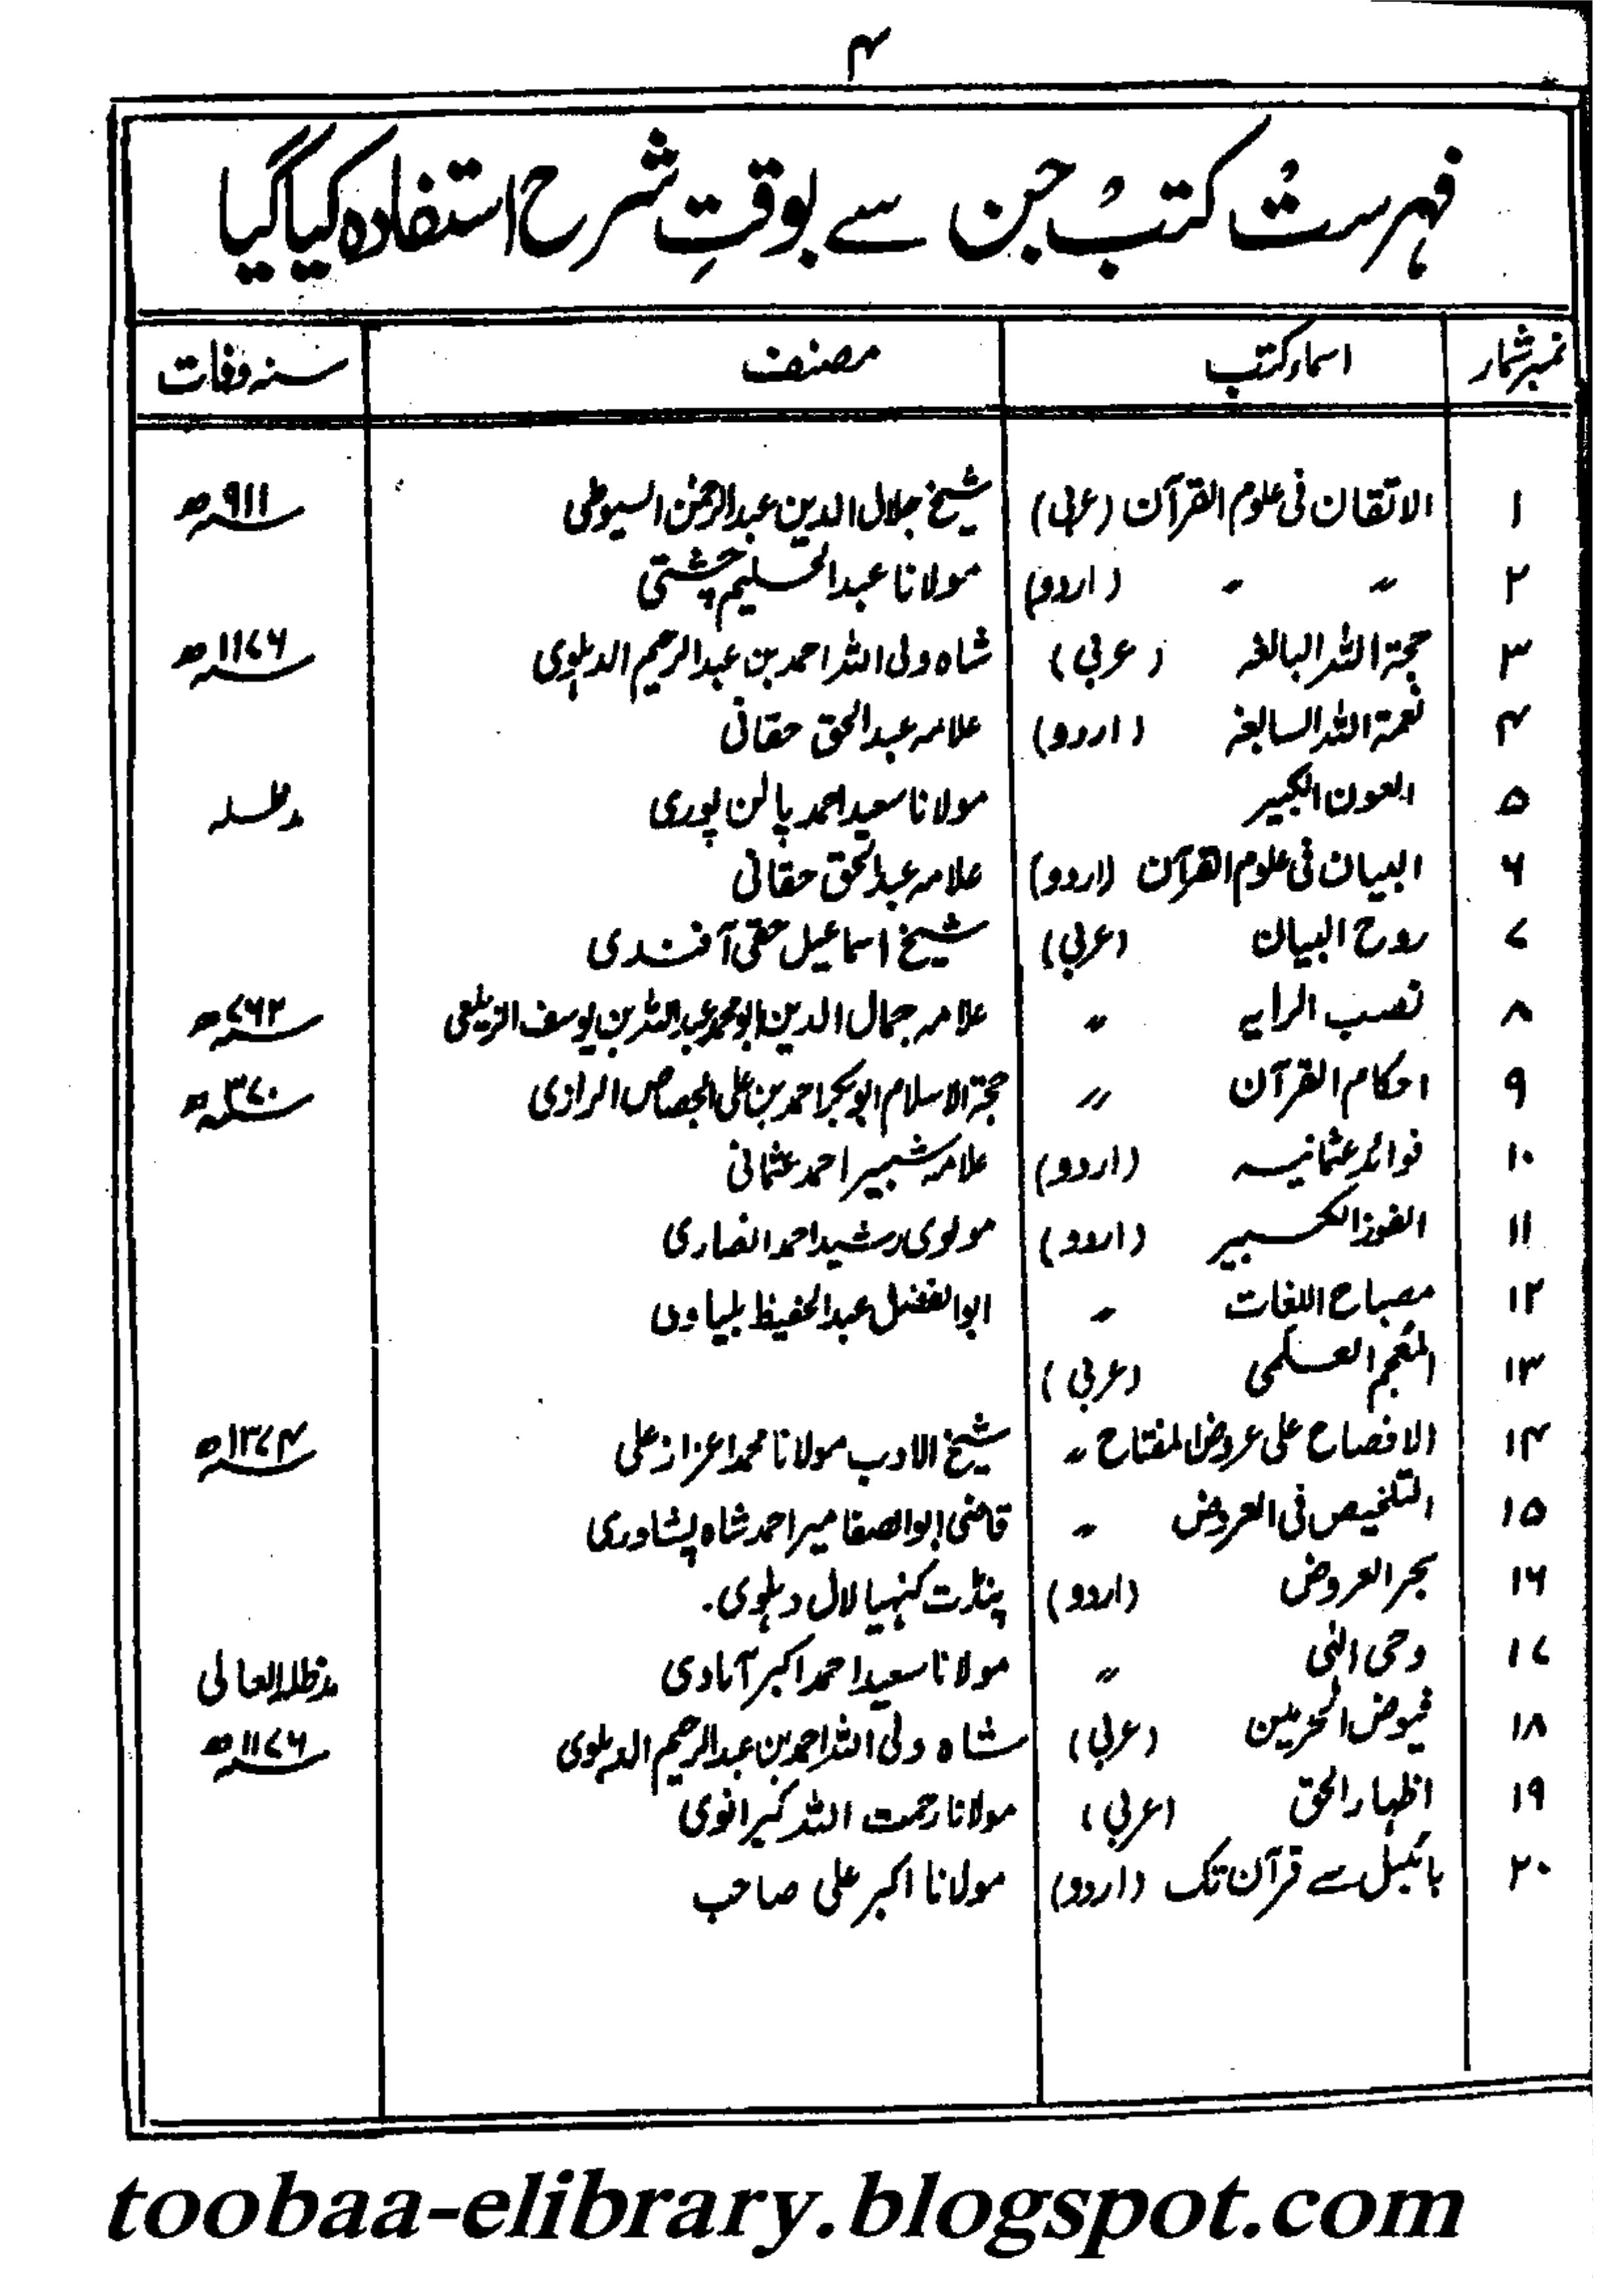 ۴
فہرست کتب جن سے بوقتِ شرح استفادہ کیا گیا
نمبر شمار اسماء کتب مصنف سنہ وفات
۱ الاتقان فی علوم القرآن (عربی) شیخ جلال الدین عبدالرحمٰن السیوطی ۹۱۱ھ
۲ ״ ״ (اردو) مولانا عبدالحلیم چشتی
۳ حجۃ اللہ البالغہ (عربی) شاہ ولی اللہ احمد بن عبدالرحیم الدہلوی ۱۱۷۶ھ
۴ نعمۃ اللہ السابغہ (اردو) علامہ عبدالحق حقانی
۵ العون الکبیر مولانا سعید احمد پالن پوری مدظلہ
۶ البیان فی علوم القرآن (اردو) علامہ عبدالحق حقانی
۷ روح البیان (عربی) شیخ اسماعیل حقی آفندی
۸ نصب الرایہ ״ علامہ جمال الدین ابو محمد عبداللہ بن یوسف الزیلعی ۷۶۲ھ
۹ احکام القرآن ״ حجۃ الاسلام ابوبکر احمد بن علی الجصاص الرازی ۳۷۰ھ
۱۰ فوائد عثمانیہ (اردو) علامہ شبیر احمد عثمانی
۱۱ الفوز الکبیر (اردو) مولوی رشید احمد انصاری
۱۲ مصباح اللغات ״ ابوالفضل عبدالحفیظ بلیاوی
۱۳ المعجم العلمی (عربی)
۱۴ الافصاح علی عروض المفتاح ״ شیخ الادب مولانا محمد اعزاز علی ۱۳۷۴ھ
۱۵ التلخیص فی العروض ״ قاضی ابوالصفا میر احمد شاہ پشاوری
۱۶ بحر العروض (اردو) پنڈت کنہیا لال دہلوی.
۱۷ وحی الٰہی ״ مولانا سعید احمد اکبر آبادی مدظلہ العالی
۱۸ فیوض الحرمین (عربی) شاہ ولی اللہ احمد بن عبدالرحیم الدہلوی ۱۱۷۶ھ
۱۹ اظہار الحق (عربی) مولانا رحمت اللہ کیرانوی
۲۰ بائیبل سے قرآن تک (اردو) مولانا اکبر علی صاحب
toobaa-elibrary.blogspot.com